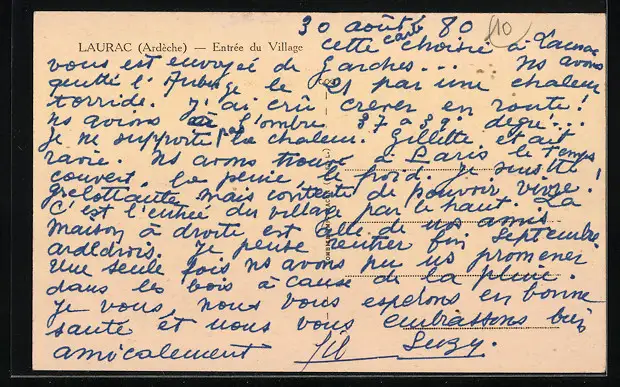 30 août 80
10
LAURAC (Ardèche) — Entrée du Village
cette carte choisie à Laurac
vous est envoyée de Garches... ns avons
quitté l' le 21 par une chaleur
torride. J'ai crû crever en route!
ns avions à l'ombre. 37 à 39° degré...
Je ne supporte pas la chaleur. Gillette était
ravie. Ns avons trouvé à Paris le temps
couvert, la pluie le froid. Je suis
grelottante mais contente de pouvoir vivre!
C'est l'entrée du village par le haut. La
maison à droite est celle de nos amis
ardéchois. Je pense rentrer fin Septembre.
Une seule fois ns avons pu ns promener
dans les bois à cause de la pluie.
Je vous, nous vous esperons en bonne
santé et nous vous embrassons bien
amicalement Suzy.